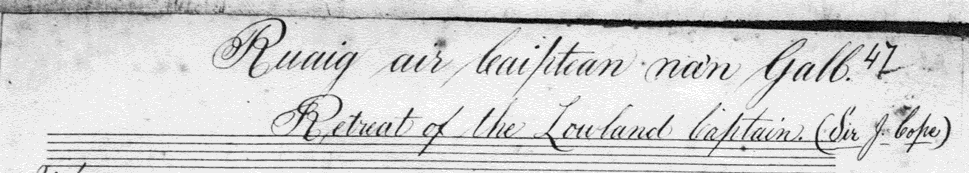 Ruaig air Caiptean na'n Gall. 47
Retreat of the Lowland Captain. (Sir J. Cope)